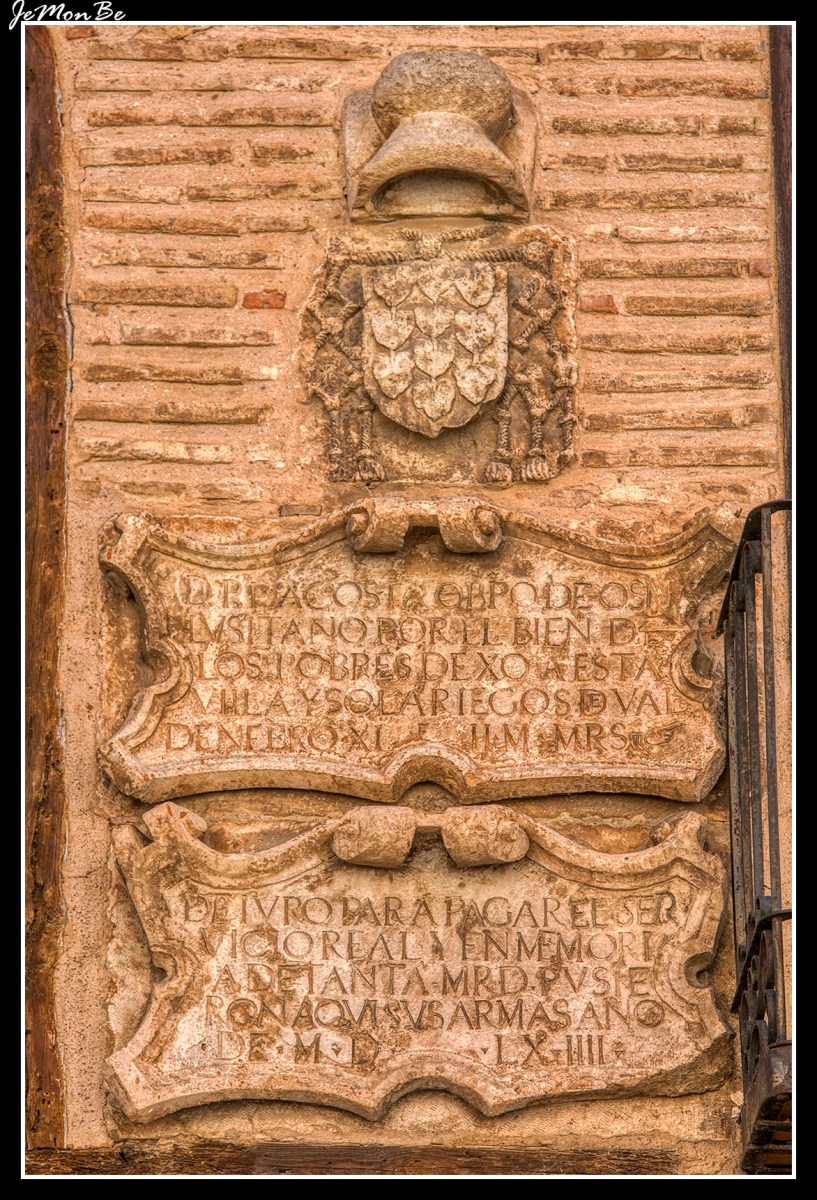 JeMonBe
D. P. DE ACOSTA OBPO DE OSM
LVSITANO POR EL BIEN DE
LOS POBRES DEXO A ESTA
VILLA Y SOLARIEGOS D VAL
DENEBRO XI II M MRS
DE IVRO PARA PAGAR EL SER
VICIO REAL Y EN MEMORI
A DE TANTA MRD. PVSIE
RON AQVI SVS ARMAS ANO
DE M D LX IIII